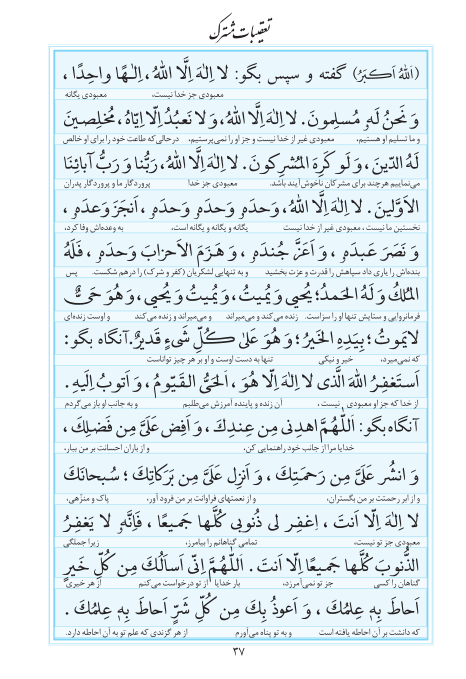 تعقیبات مشترک
(اَللهُ اَكبَرُ) گفته و سپس بگو: لا اِلٰهَ اِلَّا اللهُ، اِلٰـهًا واحِدًا ،
معبودی جز خدا نیست، معبودی یگانه
وَ نَحنُ لَهُ مُسلِمونَ. لا اِلٰهَ اِلَّا اللهُ، وَ لا نَعبُدُ اِلّا اِيّاهُ، مُخلِصينَ
و ما تسلیم او هستیم، معبودی غیر از خدا نیست و جز او را نمی‌پرستیم، درحالی‌که طاعت خود را برای او خالص
لَهُ الدّينَ، وَ لَو كَرِهَ المُشرِكونَ. لا اِلٰهَ اِلَّا اللهُ، رَبُّنا وَ رَبُّ آبائِنَا
می‌نماییم هرچند برای مشرکان ناخوشایند باشد. معبودی جز خدا پروردگار ما و پروردگار پدران
الاَوَّلينَ. لا اِلٰهَ اِلَّا اللهُ، وَحدَهُ وَحدَهُ وَحدَهُ ، اَنجَزَ وَعدَهُ ،
نخستین ما نیست، معبودی غیر از خدا نیست یگانه و یگانه و یگانه است، به وعده‌اش وفا کرد،
وَ نَصَرَ عَبدَهُ ، وَ اَعَزَّ جُندَهُ ، وَ هَزَمَ الاَحزابَ وَحدَهُ ، فَلَهُ
بنده‌اش را یاری داد سپاهش را قدرت و عزت بخشید و به تنهایی لشکریان (کفر و شرک) را درهم شکست. پس
المُلكُ وَ لَهُ الحَمدُ؛ يُحيي وَ يُميتُ، وَ يُميتُ وَ يُحيي، وَ هُوَ حَىٌّ
فرمانروایی و ستایش تنها او را سزاست. زنده می‌کند و می‌میراند و می‌میراند و زنده می‌کند و اوست زنده‌ای
لايَموتُ؛ بِيَدِهِ الخَيرُ؛ وَ هُوَ عَلىٰ كُلِّ شَىءٍ قَديرٌ. آنگاه بگو:
که نمی‌میرد، خیر و نیکی تنها به دست اوست و او بر هر چیز تواناست
اَستَغفِرُ اللهَ الَّذى لا اِلٰهَ اِلّا هُوَ ، اَلحَىُّ القَيّومُ ، وَ اَتوبُ اِلَيهِ .
از خدا که جز او معبودی نیست ، آن زنده و پاینده آمرزش می‌طلبم و به جانب او باز می‌گردم
آنگاه بگو: اَللّٰهُمَّ اهدِنى مِن عِندِكَ ، وَ اَفِض عَلَىَّ مِن فَضلِكَ ،
خدایا مرا از جانب خود راهنمایی کن، و از باران احسانت بر من ببار،
وَ انشُر عَلَىَّ مِن رَحمَتِكَ ، وَ اَنزِل عَلَىَّ مِن بَرَكاتِكَ ؛ سُبحانَكَ
و از ابر رحمتت بر من بگستران، و از نعمتهای فراوانت بر من فرود آور، پاک و منزّهی،
لا اِلٰهَ اِلّا اَنتَ ، اِغفِر لى ذُنوبى كُلَّها جَميعًا ، فَاِنَّهُ لا يَغفِرُ
معبودی جز تو نیست، تمامی گناهانم را بیامرز، زیرا جملگی
الذُّنوبَ كُلَّها جَميعًا اِلّا اَنتَ . اَللّٰهُمَّ اِنّى اَسأَلُكَ مِن كُلِّ خَيرٍ
گناهان را کسی جز تو نمی‌آمرزد، بار خدایا از تو درخواست می‌کنم از هر خیری
اَحاطَ بِهِ عِلمُكَ ، وَ اَعوذُ بِكَ مِن كُلِّ شَرٍّ اَحاطَ بِهِ عِلمُكَ .
که دانشت بر آن احاطه یافته است و به تو پناه می‌آورم از هر گزندی که علم تو به آن احاطه دارد.
۳۷